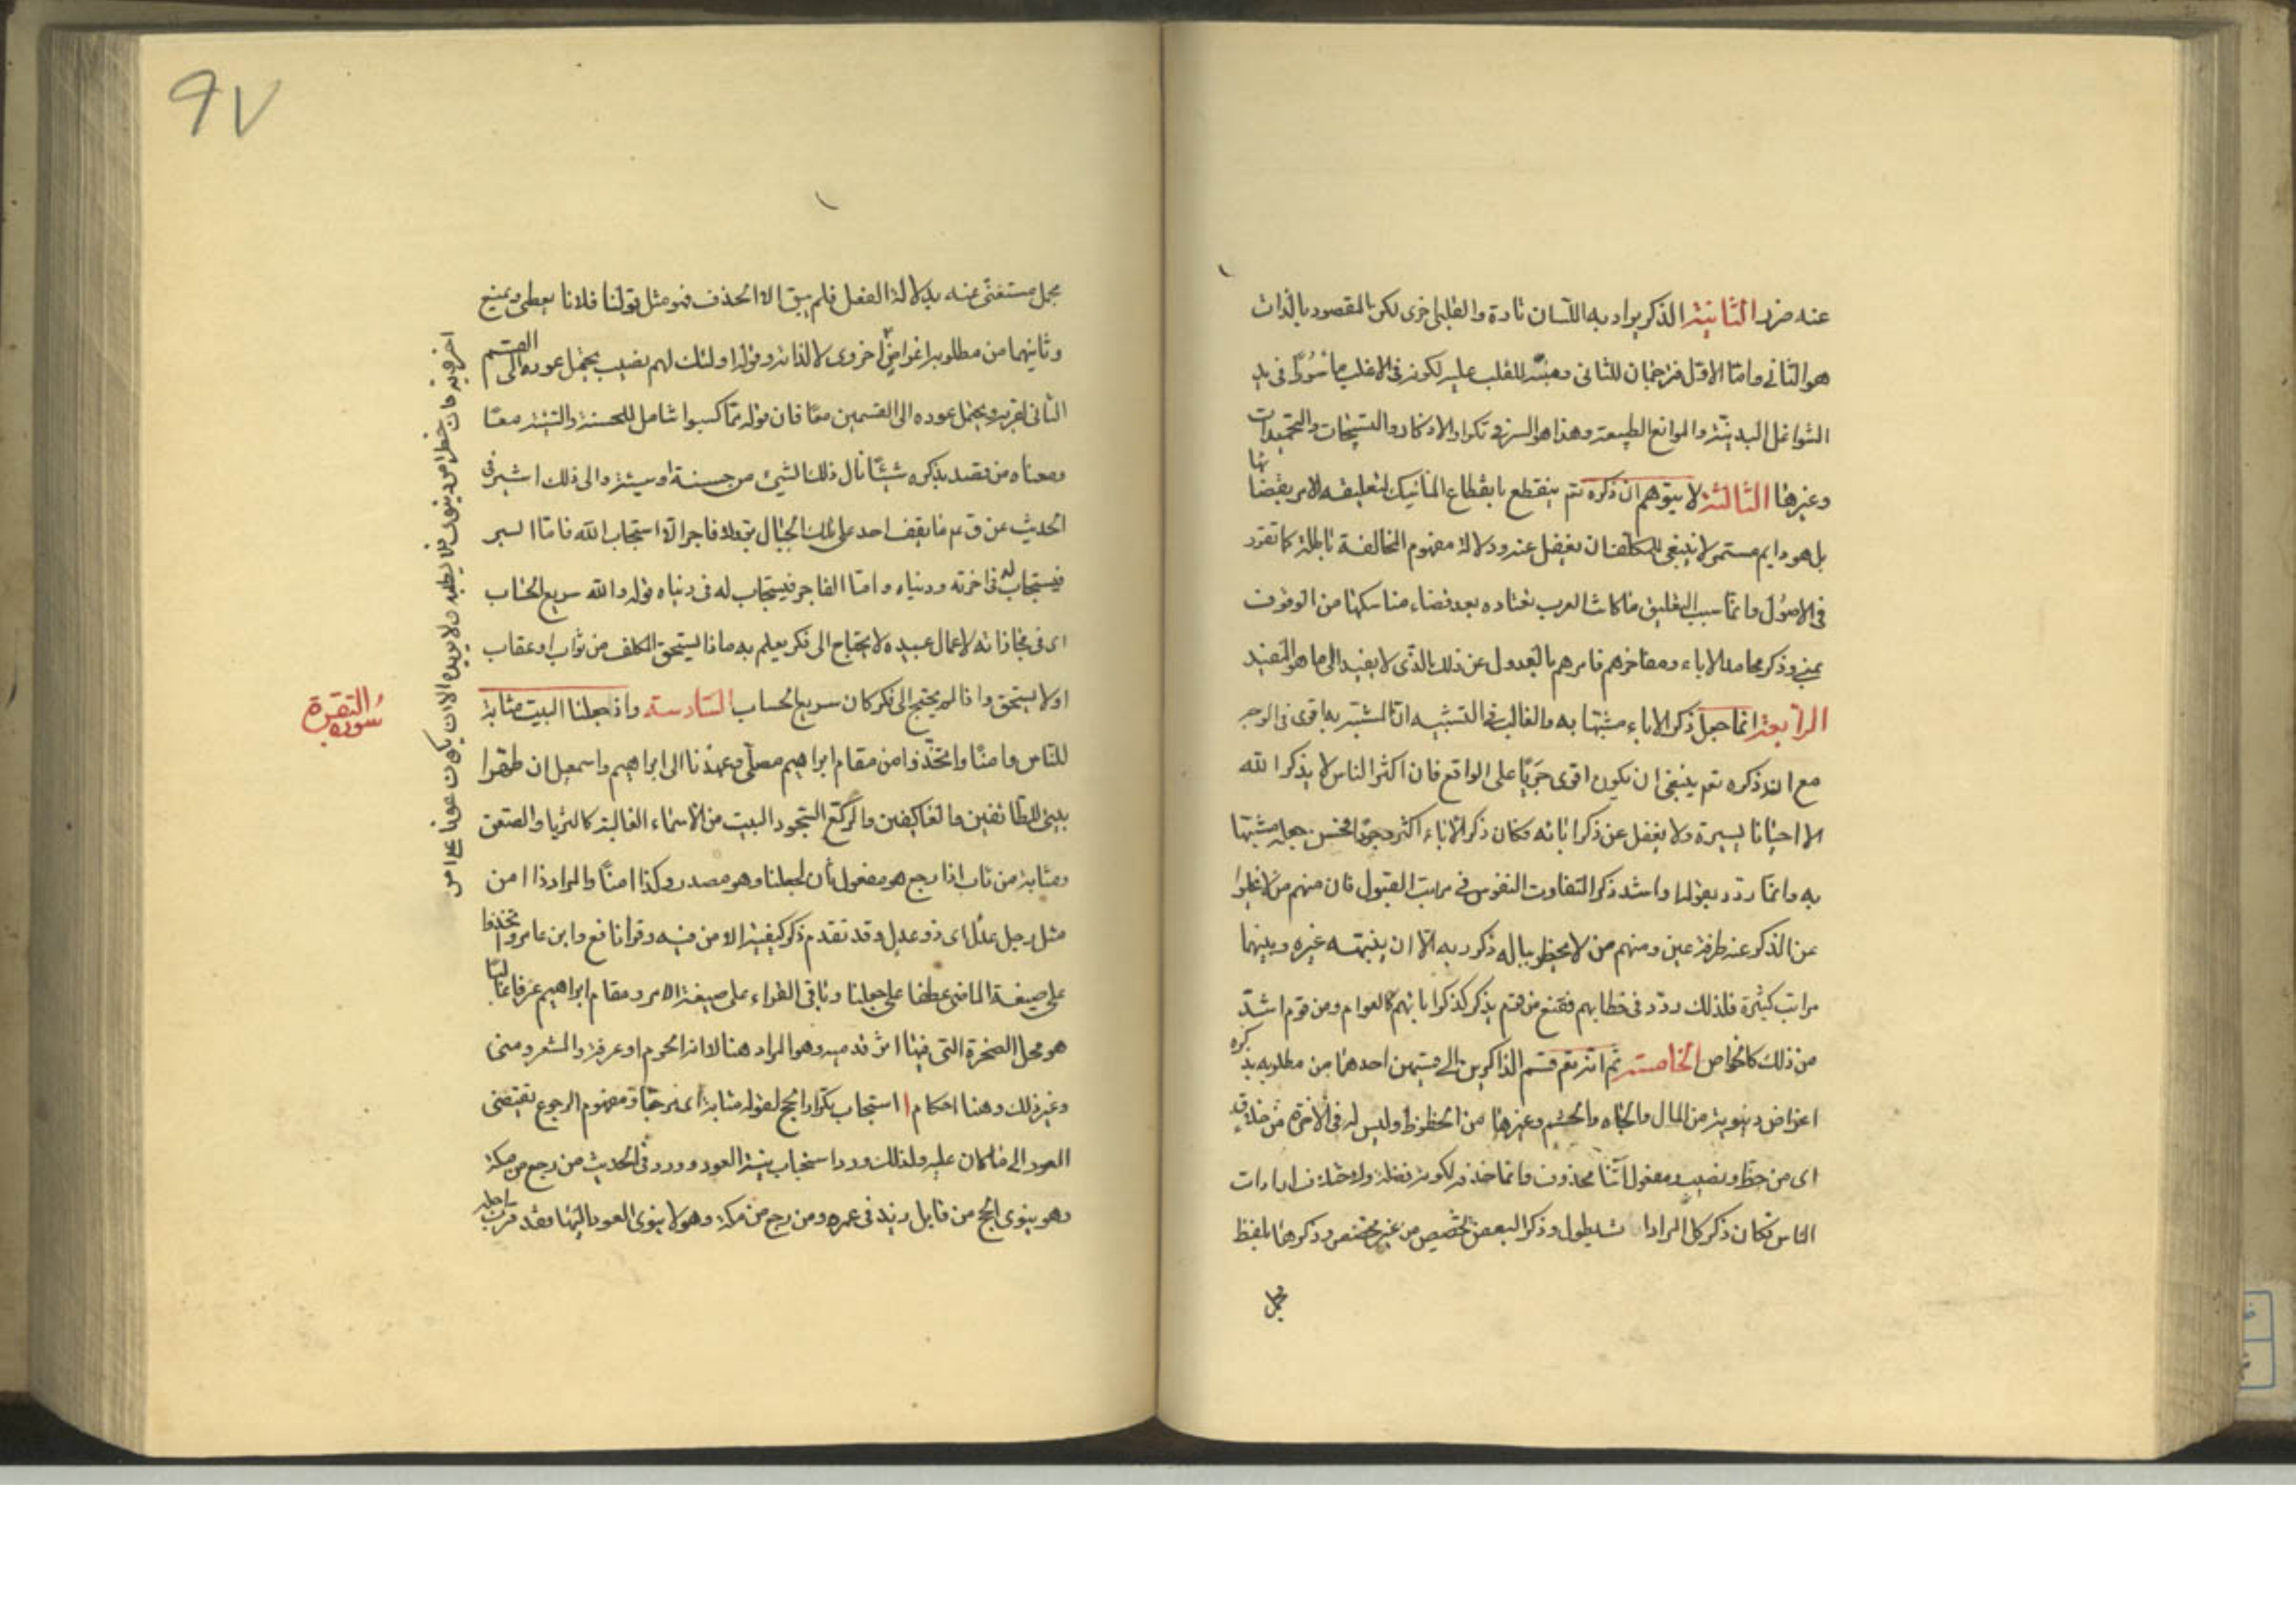 عنه ضرر الثانية الذكر يراد به اللسان تارة والقلب اخرى لكن المقصود بالذات
هو الثاني واما الاول فترجمان للثاني ومنبه للقلب عليه لكونه في الاغلب مأسورا في يد
الشواغل البدنية والموانع الطبيعية وهذا هو السر في تكرار الاذكار والتسبيحات والتحميدات
وغيرها الثالثة لا يتوهم ان ذكره تع ينقطع بانقطاع المناسك لتعليقه الامر بقضائها
بل هو دايم مستمر لا ينبغي للمكلف ان يغفل عنه ودلالة مفهوم المخالفة باطلة كما تقرر
في الاصول وانما سبب التعليق ما كانت العرب تعتاده بعد قضاء مناسكها من الوقوف
بمنى وذكر محامد الاباء ومفاخرهم فامرهم بالعدول عن ذلك الذي لا يفيد الى ما هو المفيد
الرابعة انما جعل ذكر الاباء مشبها به والغالب في التشبيه ان المشبه به اقوى في الوجه
مع ان ذكره تع ينبغي ان يكون اقوى جريا على الواقع فان اكثر الناس لا يذكر الله
الا احيانا يسيرة ولا يغفل عن ذكر ابائه فكان ذكر الاباء اكثر وجودا فحسن جعله مشبها
به وانما ردد بقوله او اشد ذكرا لتفاوت النفوس في مراتب القبول فان منهم من لا يخلوا
عن الذكر عنه طرفة عين ومنهم من لا يخطر بباله ذكر ربه الا ان ينبهه غيره وبينهما
مراتب كثيرة فلذلك ردد في خطابهم فقنع من قوم بذكر كذكر ابائهم كالعوام ومن قوم اشد
من ذلك كالخواص الخامسة ثم انه تع قسم الذاكرين الى قسمين احدهما من مطلوبه بذكره
اغراض دنيوية من المال والجاه والحشم وغيرها من الحظوظ وليس له في الاخرة من خلاق
اى من حظ ونصيب ومفعول آتنا محذوف وانما حذف لكونه فضلة ولاختلاف ارادات
الناس فكان ذكر كل المرادات يطول وذكر البعض تخصيص من غير مخصص وذكرها بلفظ
مجمل
٩٧
مجمل مستغنى عنه بدلالة الفعل فلم يبق الا الحذف فهو مثل قولنا فلانا يعطى ويمنع
وثانيهما من مطلوبه اغراض اخروى لا لذاته وقوله اولئك لهم نصيب يحتمل عوده الى القسم
الثاني لقربه ويحتمل عوده الى القسمين معا فان قوله مما كسبوا شامل للحسنة والسيئة معا
ومعناه من قصد بذكره شيئا نال ذلك الشيء من حسنة او سيئة والى ذلك اشير في
الحديث عن ق ع ما يقف احد على تلك الجبال بر ولا فاجر الا استجاب الله فاما البر
فيستجاب له في اخرته ودنياه واما الفاجر فيستجاب له في دنياه قوله والله سريع الحساب
اى في مجازاته لاعمال عبيده لا يحتاج الى فكر يعلم به ماذا يستحق المكلف من ثواب او عقاب
اولا يستحق واذا لم يحتج الى فكر كان سريع الحساب السادسة واذ جعلنا البيت مثابة
للناس وامنا واتخذوا من مقام ابراهيم مصلى وعهدنا الى ابراهيم واسمعيل ان طهرا
بيتي للطائفين والعاكفين والركع السجود البيت من الاسماء الغالبة كالثريا والصعق
ومثابة من ثاب اذا رجع هو مفعول ثان لجعلنا وهو مصدر وكذا امنا والمراد ذا امن
مثل رجل عدل اى ذو عدل وقد تقدم ذكر كيفية الامن فيه وقرأ نافع وابن عامر واتخذوا
على صيغة الماضي عطفا على جعلنا وباقي القراء على صيغة الامر ومقام ابراهيم عرفا غالبا
هو محل الصخرة التي فيها اثر قدميه وهو المراد هنا لا انه الحرم او عرفة والمشعر ومنى
وغير ذلك وهنا احكام ا استحباب تكرار الحج لقوله مثابة اى مرجعا ومفهوم الرجوع يقتضى
العود الى ما كان عليه ولذلك ورد استحباب نية العود وورد في الحديث من رجع من مكة
وهو ينوى الحج من قابل زيد في عمره ومن رجع من مكة وهو لا ينوى العود اليها فقد قرب اجله
سورة البقرة